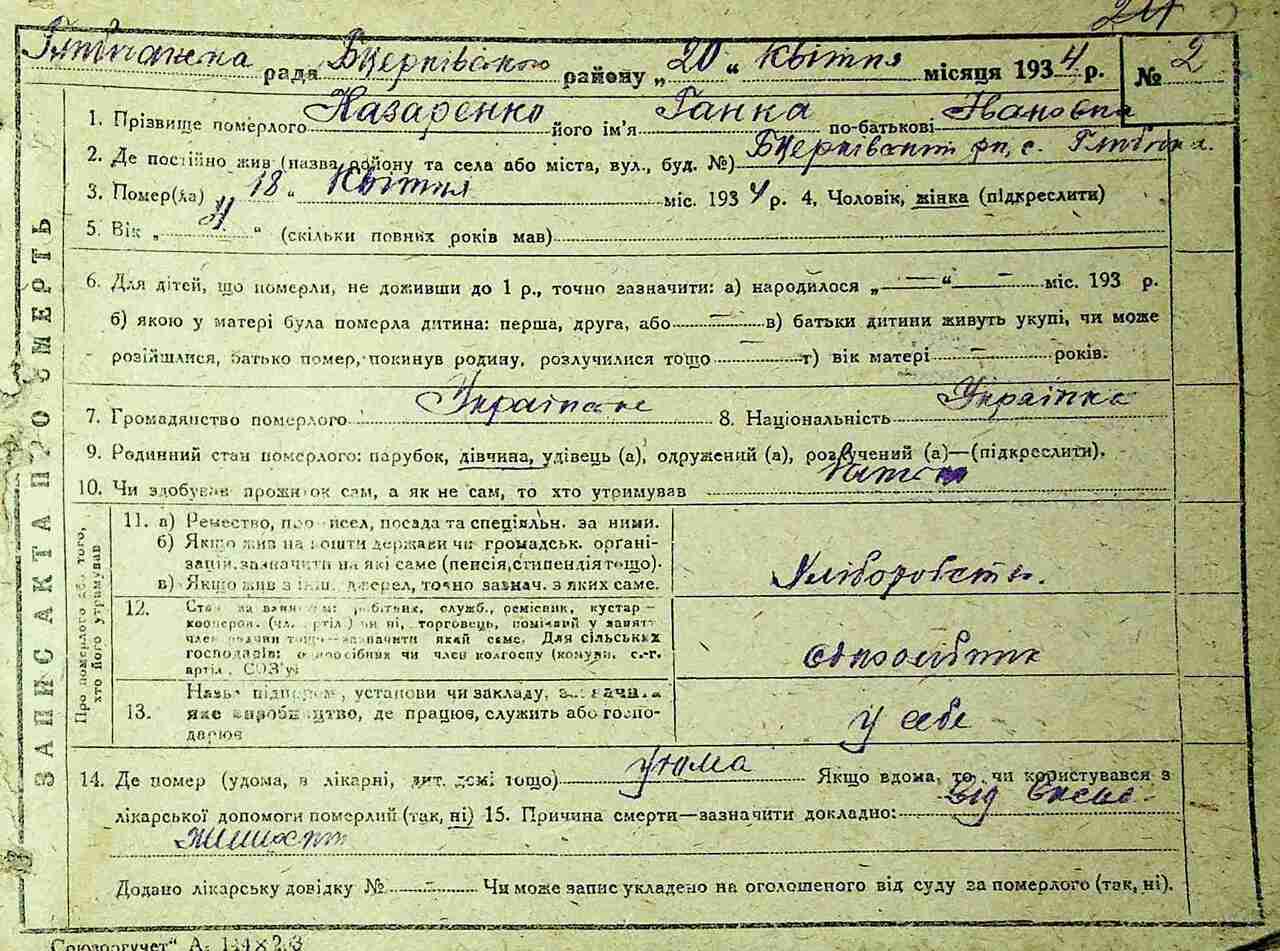 рада Бцерківського району „20“ квітня місяця 1934 р. № 2
1. Прізвище померлого Назаренко його ім'я Ганка по-батькові Івановна
2. Де постійно жив (назва району та села або міста, вул., буд. №) рн, с.
3. Помер(ла) „18“ Квітня міс. 1934 р. 4, Чоловік, жінка (підкреслити)
5. Вік „ “ (скільки повних років мав)
6. Для дітей, що померли, не доживши до 1 р., точно зазначити: а) народилося „—“ — міс. 193 р.
б) якою у матері була померла дитина: перша, друга, або — в) батьки дитини живуть укупі, чи може
розійшлися, батько помер, покинув родину, розлучилися тощо — г) вік матері — років.
7. Громадянство померлого 8. Національність Українка
9. Родинний стан померлого: парубок, дівчина, удівець (а), одружений (а), розлучений (а)—(підкреслити).
10. Чи здобував прожиток сам, а як не сам, то хто утримував
ЗАПИС АКТА ПРО СМЕРТЬ
Про померлого або того, хто його утримував
11. а) Ремество, промисел, посада та спеціяльн. за ними.
б) Якщо жив на кошти держави чи громадськ. орґані-
зацій, зазначити на які саме (пенсія, стипендія тощо).
в) Якщо жив з інш. джерел, точно зазнач. з яких саме.
Хліборобство.
12. Стан на занятт: робітник, служб., ремісник, кустар—
кооперов. (чл. артіл.) чи ні, торговець, помічний у занятт
член родини тощо—зазначити який саме. Для сільських
господарів: одноосібник чи член колгоспу (комуни, с.-г.
артіл., СОЗ'у)
одноосібник
13. Назва підприєм., установи чи закладу, зазначити
яке виробництво, де працює, служить або госпо-
дарює
у себе
14. Де помер (удома, в лікарні, дит. домі тощо) удома Якщо вдома, то чи користувався з
лікарської допомоги померлий (так, ні) 15. Причина смерти—зазначити докладно: Від
Додано лікарську довідку № - Чи може запис укладено на оголошеного від суду за померлого (так, ні).
„Союзоргучет“ А.